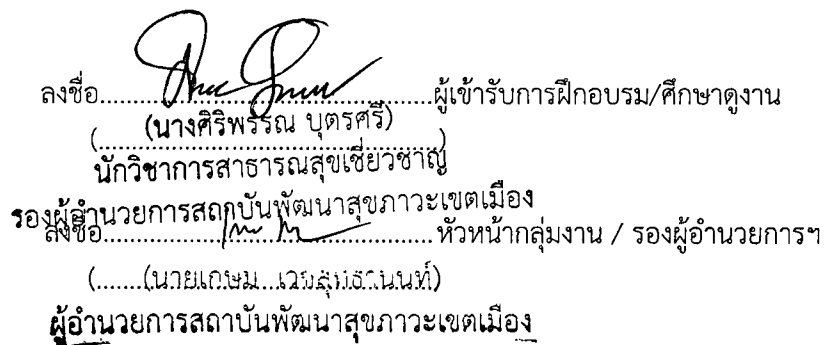 ลงชื่อ................................................ผู้เข้ารับการฝึกอบรม/ศึกษาดูงาน
(นางศิริพรรณ บุตรศรี)
(................................................)
นักวิชาการสาธารณสุขเชี่ยวชาญ
รองผู้อำนวยการสถาบันพัฒนาสุขภาวะเขตเมือง
ลงชื่อ................................................หัวหน้ากลุ่มงาน / รองผู้อำนวยการฯ
(.......(นายเกษม
ผู้อำนวยการสถาบันพัฒนาสุขภาวะเขตเมือง